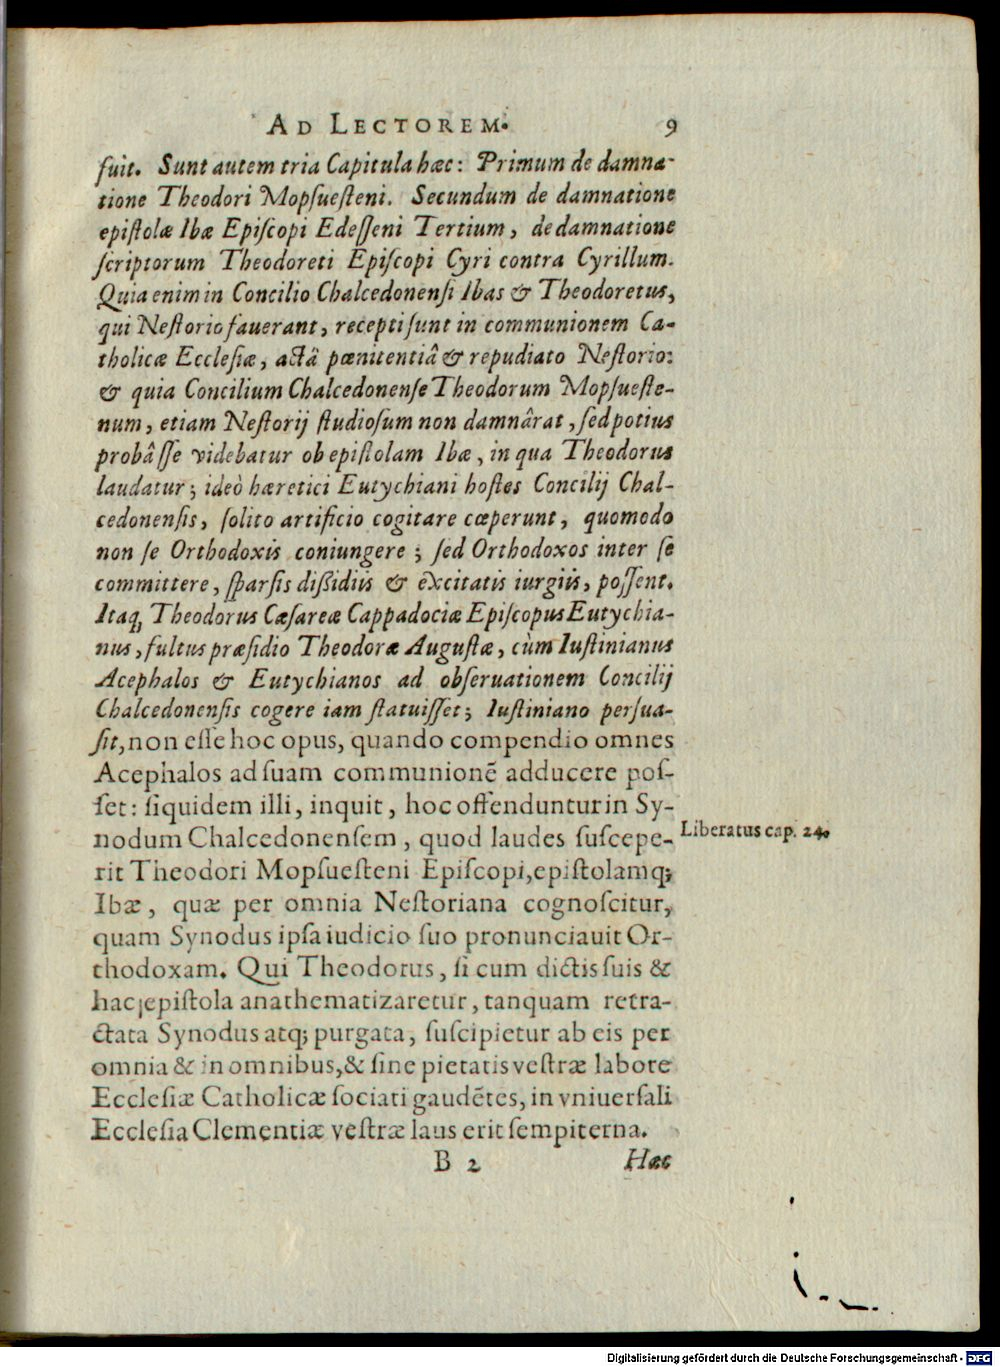 AD LECTOREM. 9
fuit. Sunt autem tria Capitula hæc: Primum de damna-
tione Theodori Mopſueſteni. Secundum de damnatione
epiſtolæ Ibæ Epiſcopi Edeſſeni Tertium, de damnatione
ſcriptorum Theodoreti Epiſcopi Cyri contra Cyrillum.
Quia enim in Concilio Chalcedonenſi Ibas & Theodoretus,
qui Neſtorio fauerant, recepti ſunt in communionem Ca-
tholicæ Eccleſiæ, actâ pœnitentiâ & repudiato Neſtorio:
& quia Concilium Chalcedonenſe Theodorum Mopſueſte-
num, etiam Neſtorij ſtudioſum non damnârat, ſed potius
probâſſe videbatur ob epiſtolam Ibæ, in qua Theodorus
laudatur; ideò hæretici Eutychiani hoſtes Concilij Chal-
cedonenſis, ſolito artificio cogitare cœperunt, quomodo
non ſe Orthodoxis coniungere; ſed Orthodoxos inter ſe
committere, ſparſis dißidiis & excitatis iurgiis, poſſent.
Itaq; Theodorus Cæſareæ Cappadociæ Epiſcopus Eutychia-
nus, fultus præſidio Theodoræ Auguſtæ, cùm Iuſtinianus
Acephalos & Eutychianos ad obſeruationem Concilij
Chalcedonenſis cogere iam ſtatuiſſet; Iuſtiniano perſua-
ſit, non eſſe hoc opus, quando compendio omnes
Acephalos ad ſuam communionē adducere poſ-
ſet: ſiquidem illi, inquit, hoc offenduntur in Sy-
nodum Chalcedonenſem, quod laudes ſuſcepe-
rit Theodori Mopſueſteni Epiſcopi, epiſtolamq;
Ibæ, quæ per omnia Neſtoriana cognoſcitur,
quam Synodus ipſa iudicio ſuo pronunciauit Or-
thodoxam. Qui Theodorus, ſi cum dictis ſuis &
hac epiſtola anathematizaretur, tanquam retra-
ctata Synodus atq; purgata, ſuſcipietur ab eis per
omnia & in omnibus, & ſine pietatis veſtræ labore
Eccleſiæ Catholicæ ſociati gaudētes, in vniuerſali
Eccleſia Clementiæ veſtræ laus erit ſempiterna.
Liberatus cap. 24.
B 2 Hæc
Digitalisierung gefördert durch die Deutsche Forschungsgemeinschaft - DFG